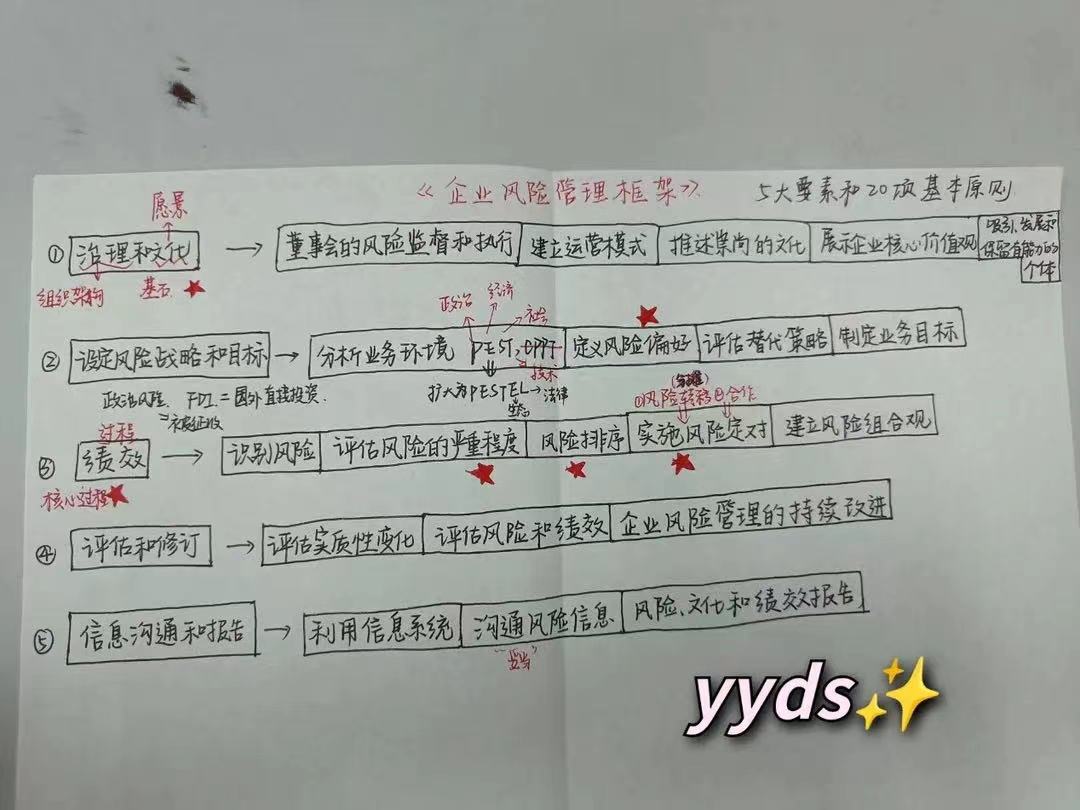 《企业风险管理框架》 5大要素和20项基本原则
愿景
① 治理和文化 → 董事会的风险监督和执行 建立运营模式 推述崇尚的文化 展示企业核心价值观 吸引、发展和保留有能力的个体
组织架构 基石
政治 经济 社会
② 设定风险战略和目标 → 分析业务环境 PEST, 定义风险偏好 评估替代策略 制定业务目标
技术
扩大为PESTEL→法律
政治风险、FDI = 国外直接投资.
被征收
①风险转移 ②合作
过程
③ 绩效 → 识别风险 评估风险的严重程度 风险排序 实施风险应对 建立风险组合观
核心过程
④ 评估和修订 → 评估实质性变化 评估风险和绩效 企业风险管理的持续改进
⑤ 信息沟通和报告 → 利用信息系统 沟通风险信息 风险、文化和绩效报告
yyds